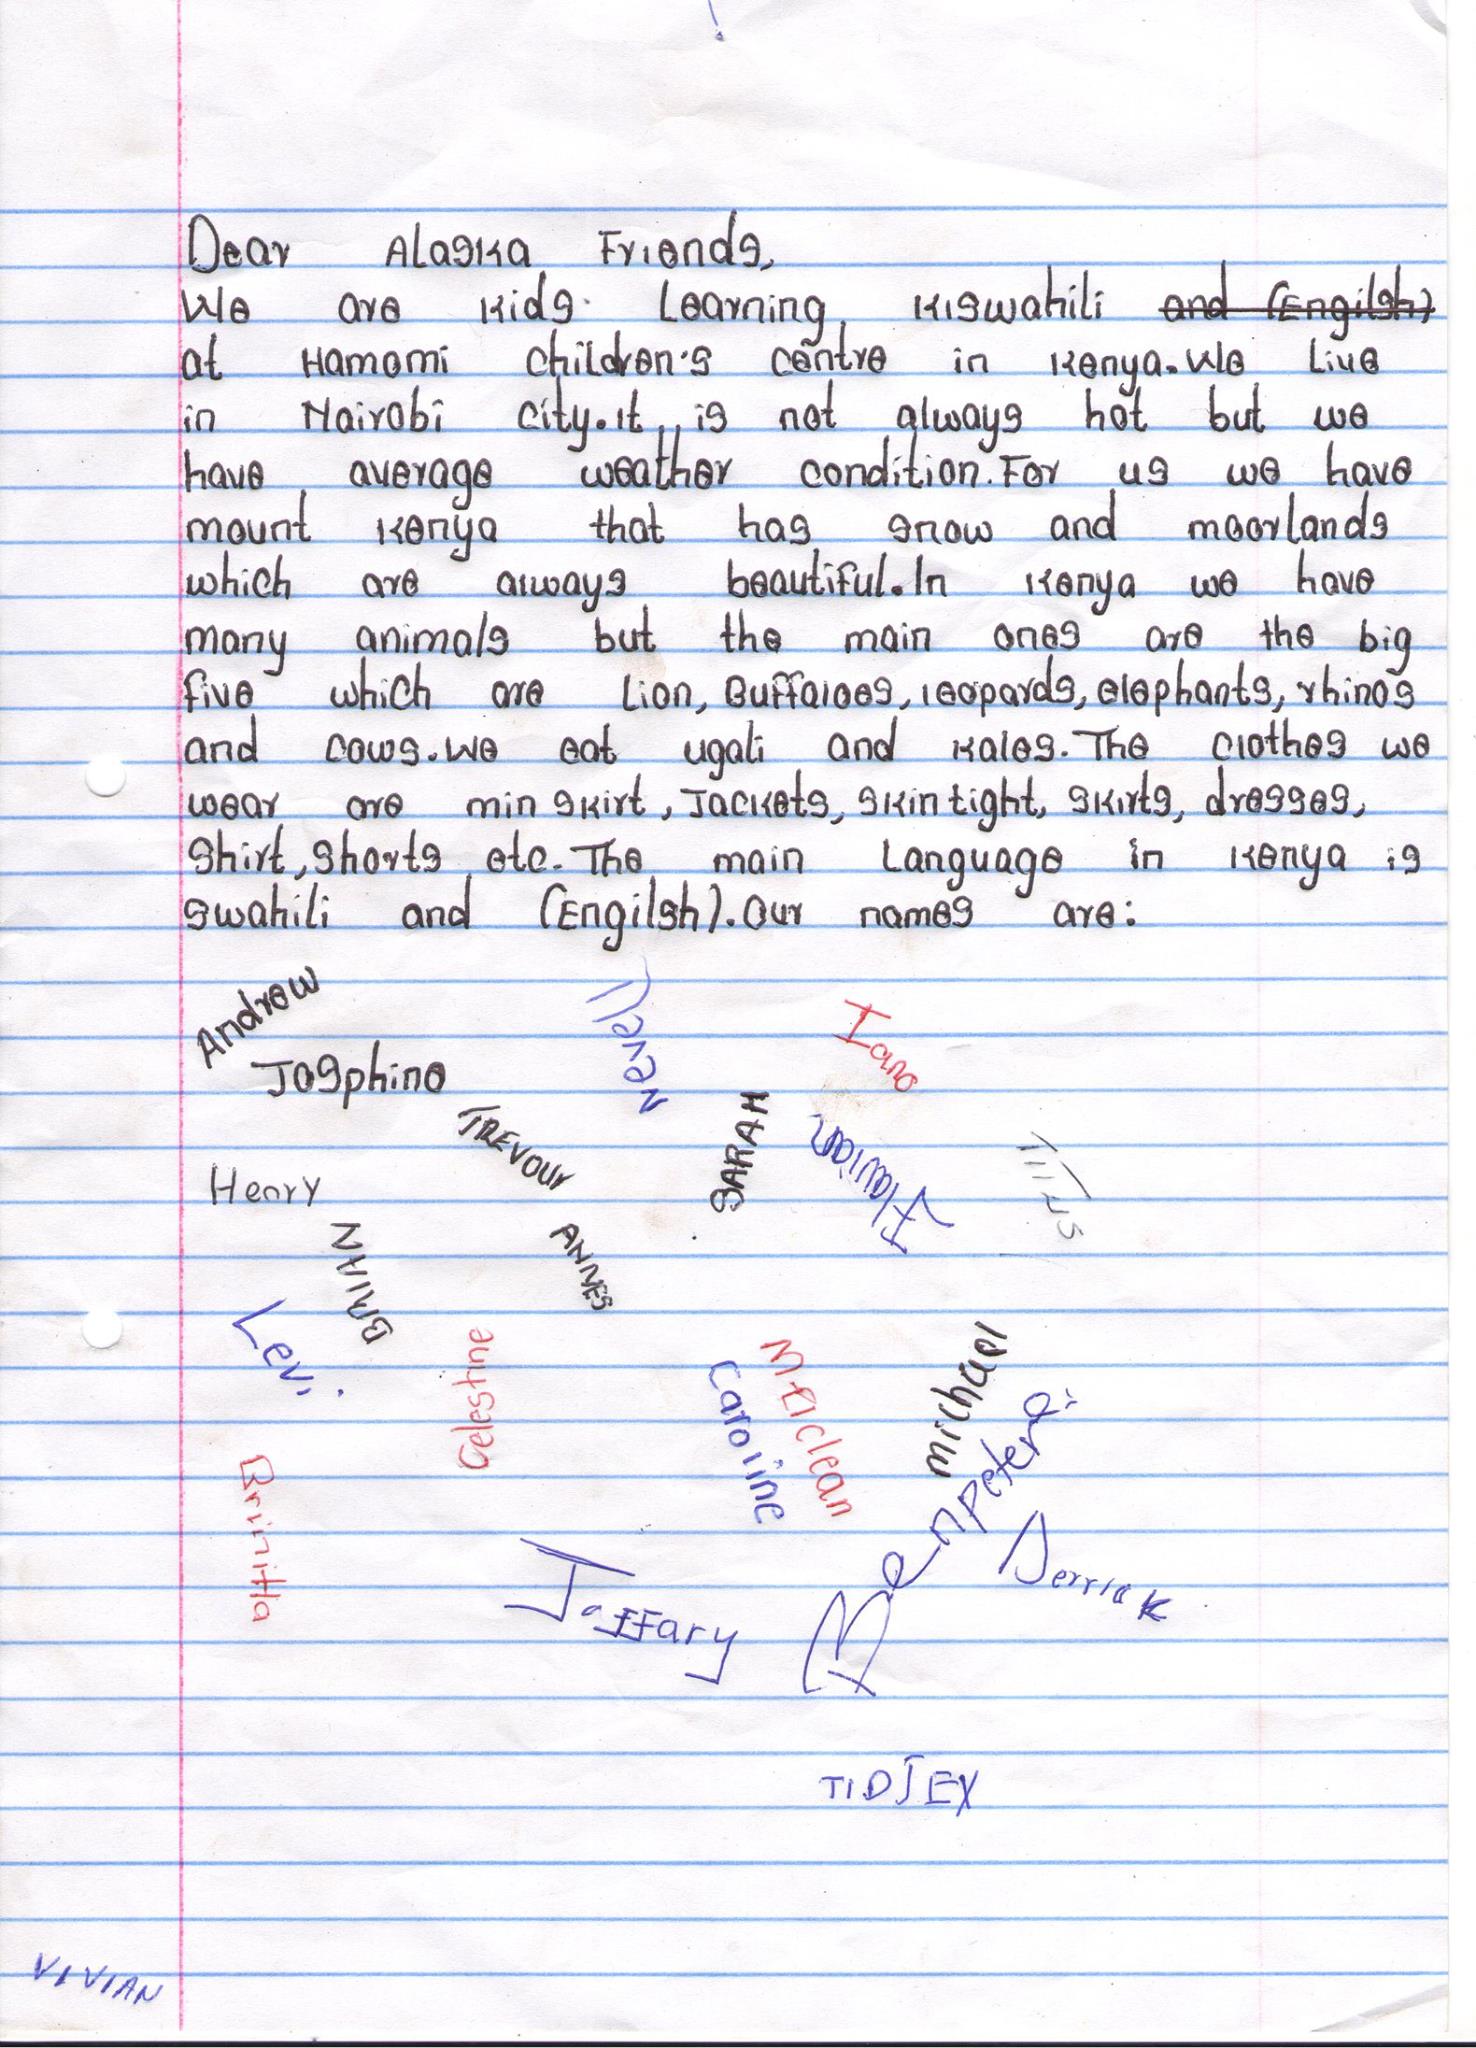 Dear Alaska Friends,
We are kids Learning Kiswahili and (Engilsh)
at Hamomi children's centre in Kenya. We Live
in Nairobi city. It is not always hot but we
have average weather condition. For us we have
mount Kenya that has snow and moorlands
which are always beautiful. In Kenya we have
many animals but the main ones are the big
five which are Lion, Buffaloes, leopards, elephants, rhinos
and cows. We eat ugali and kales. The clothes we
wear are min skirt, Jackets, skin tight, skirts, dresses,
Shirt, shorts etc. The main Language in Kenya is
swahili and (Engilsh). Our names are:
Andrew
Josphine
TREVOUR
SARAH
Flavian
TITUS
Henry
BRIIAN
ANNES
Levi
Celestine
Caroline
michael
Brinitta
Jaffary
Derrick
TIDJEX
VIVIAN